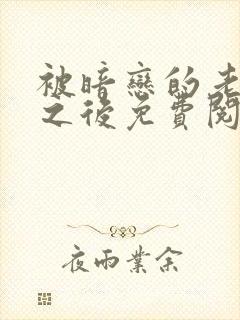 被暗戀的老
之後免費閱
夜雨業余